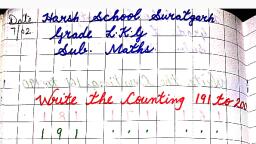 Date Harsh School Suratgarh
7/02 Grade L.K.G
Sub. Maths
Write the Counting 191 to 200
1 9 1